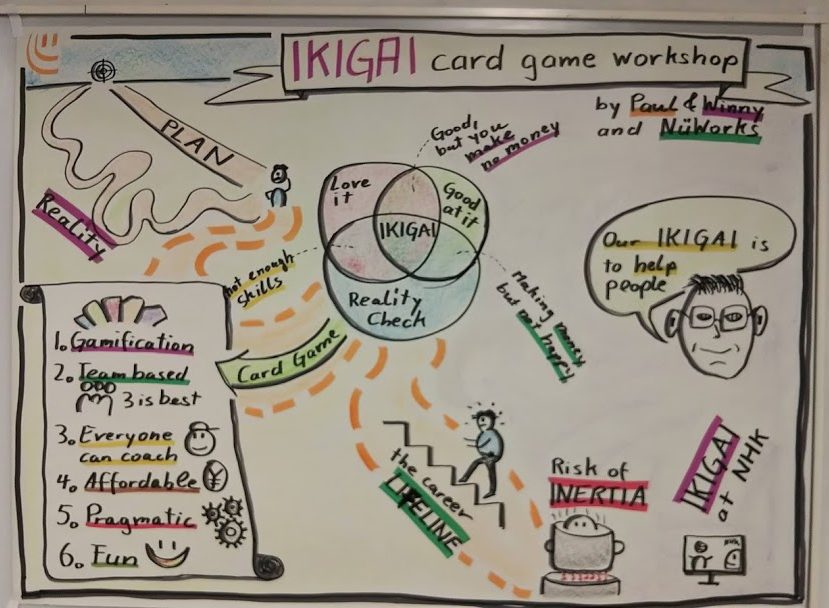 IKIGAI card game workshop
by Paul & Winny
and NüWorks
PLAN
Reality
Good,
but you
make
no money
Love
it
Good
at it
IKIGAI
Reality
Check
not enough
skills
Making money
but not happy
Our IKIGAI is
to help
people
Card Game
1. Gamification
2. Team based
3 is best
3. Everyone
can coach
4. Affordable
¥
5. Pragmatic
6. Fun
the career
LIFELINE
Risk of
INERTIA
IKIGAI
at NHK